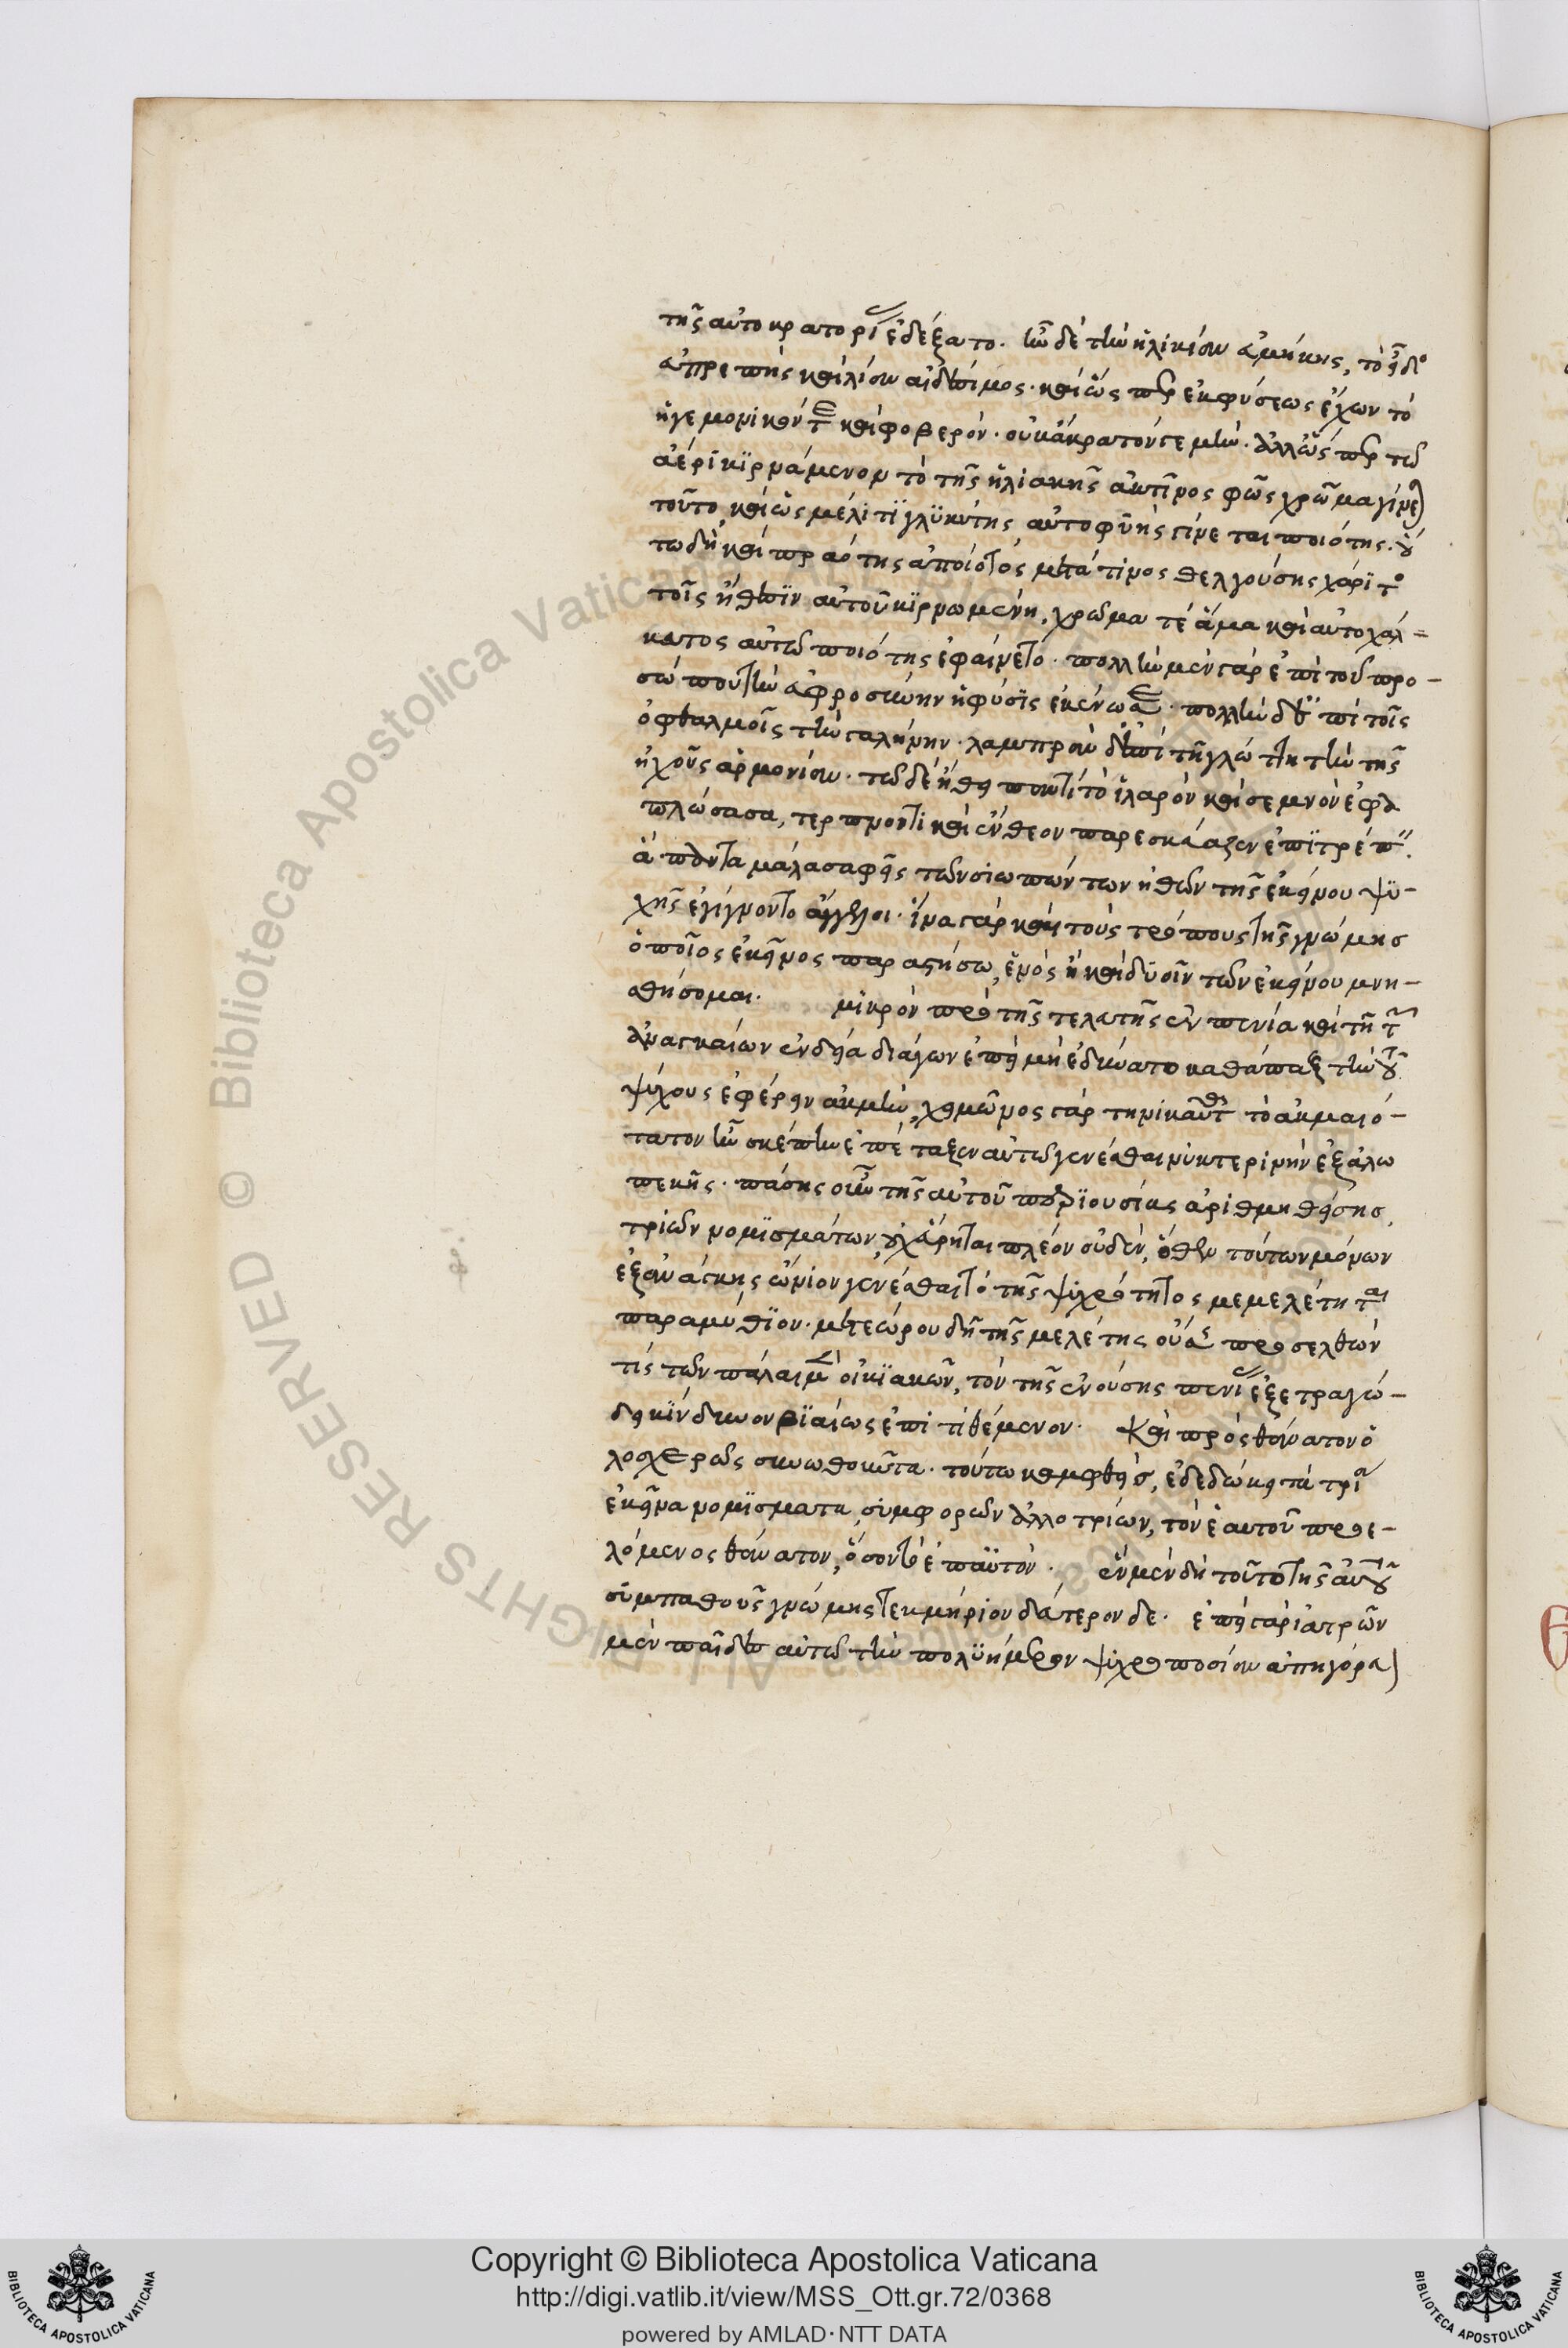 της αὐτοκρατορί ἐδέξατο. ἦν δὲ τὴν ἡλικίαν εὐμήκης, τὸ εἶδο
εὐπρεπὴς καὶ λίαν αἰδέσιμος. καὶ ὡς περ ἐκ φύσεως ἔχων τὸ
ἡγεμονικόν τε καὶ φοβερόν. οὐκ ἄκρατόν τε μὴν. ἀλλ' ὥς περ τῶ
ἀέρι κιρνάμενον τὸ τῆς ἡλιακῆς ἀκτῖνος φῶς χρῶμα γίνε)
τοῦτο, καὶ ὡς μέλιτι γλυκύτης αὐτοφυὴς γίνεται ποιότης. οὕ
τω δὴ καὶ πραότης ἀποίητος μετά τινος θελγούσης χάριτο
τοῖς ἤθεσιν αὐτοῦ κιρνωμένη, χρῶμα τέ ἅμα καὶ
αὐτῶ ποιότης ἐφαίνετο. πολλὴν μὲν γὰρ ἐπὶ τοῦ προ-
σώπου τὴν εὐφροσύνην ἡ φύσις ἐκένωσε. πολλὴν δ' ἐπὶ τοῖς
ὀφθαλμοῖς τὴν γαλήνην. λαμπρὰν δ' ἐπὶ τῆ γλώττη τὴν τῆς
ἠχοῦς ἁρμονίαν. τῶ δὲ ἤθει παντὶ τὸ ἱλαρὸν καὶ σεμνὸν ἐφα
πλώσασα, τερπνόν τι καὶ ἔνθεον παρεσκεύαζεν ἐπιτρέπειν.
ἃ πάντα μάλα σαφεῖς τῶν σιωπώντων ἠθῶν τῆς ἐκείνου ψυ-
χῆς ἐγίγνοντο ἄγγελοι. ἵνα γὰρ καὶ τοὺς τρόπους τῆς γνώμης
ὁποῖος ἐκεῖνος παραστήσω, ἑνὸς ἢ καὶ δυοῖν τῶν ἐκείνου μνη-
σθήσομαι. μικρὸν πρὸ τῆς τελευτῆς ἐν πενία καὶ τῆ τῶν
ἀναγκαίων ἐνδεία διάγων ἐπεὶ μὴ ἐδύνατο καθάπαξ τὴν τοῦ
ψύχους ἐφέρειν ἀκμὴν, χειμῶνος γὰρ τηνικαῦτα τὸ ἀκμαιό-
τατον ἦν σκέπην ἐπέταξεν αὐτῶ γενέσθαι νυκτερινὴν ἐξ ἀλω
πεκῆς. πάσης οὖν τῆς αὐτοῦ περιουσίας ἀριθμηθείσης,
τριῶν νομισμάτων, οὐχ εὕρηται πλέον οὐδέν, ὅθεν τούτων μόνων
ἐξ ἀνάγκης ὤνιον γενέσθαι τὸ τῆς ψυχρότητος μεμελέτηται
παραμύθιον. μετεώρου δὴ τῆς μελέτης οὔσης προσελθών
τίς τῶν πάλαι μὲν οἰκιακῶν, τὸν τῆς ἐνούσης πενί ἐξετραγώ-
δει κίνδυνον βιαίως ἐπιτιθέμενον. Καὶ πρὸς θάνατον ὁ
λοσχερῶς συνωθοῦντα. τούτω καμφθεὶς, ἐδεδώκει τὰ τρία
ἐκεῖνα νομίσματα, συμφορῶν ἀλλοτρίων, τὸν ἑαυτοῦ προε-
λόμενος θάνατον, ὅσον τὸ ἐπ' αὐτόν. ἓν μὲν δὴ τοῦτο τῆς αὐτοῦ
συμπαθοῦς γνώμης τεκμήριον δεύτερον δε. ἐπεὶ γὰρ ἰατρῶν
μὲν παῖδες αὐτῶ τὴν πολυήμερον ψυχροποσίαν ἀπηγόρευ)
Copyright © Biblioteca Apostolica Vaticana
http://digi.vatlib.it/view/MSS_Ott.gr.72/0368
powered by AMLAD·NTT DATA
BIBLIOTECA APOSTOLICA VATICANA
BIBLIOTECA APOSTOLICA VATICANA